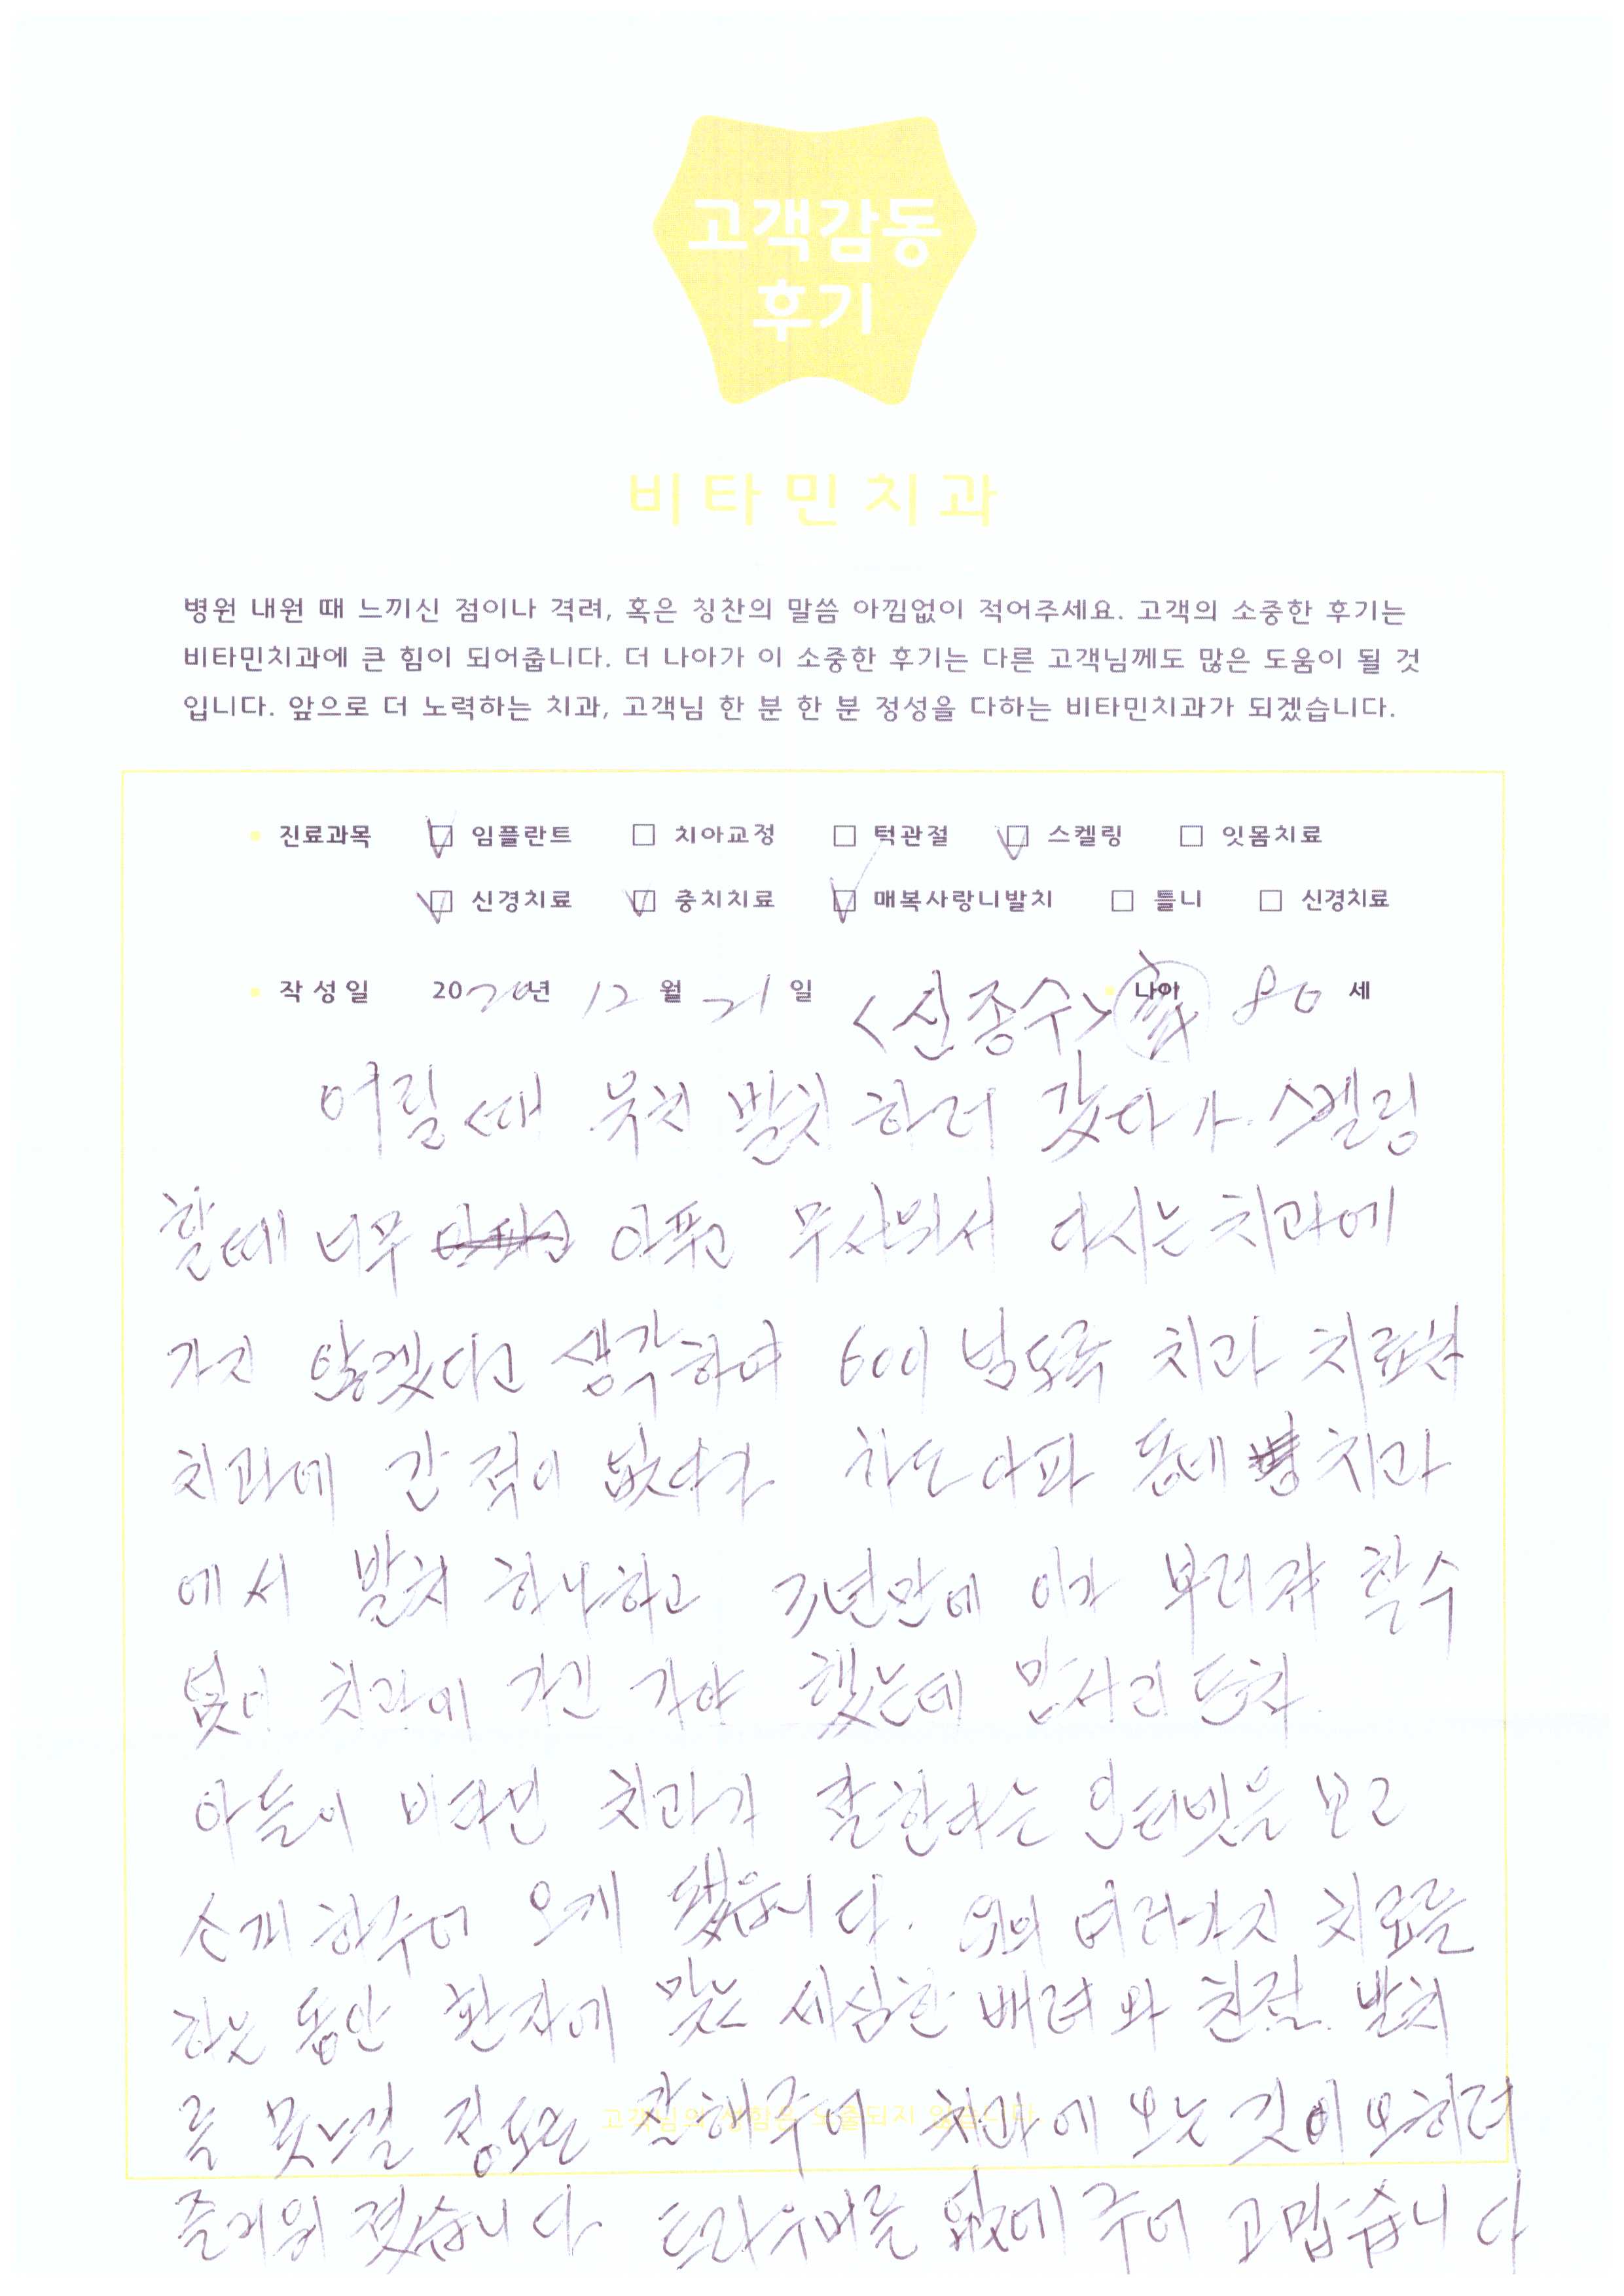 고객감동
후기
비타민치과
병원 내원 때 느끼신 점이나 격려, 혹은 칭찬의 말씀 아낌없이 적어주세요. 고객의 소중한 후기는
비타민치과에 큰 힘이 되어줍니다. 더 나아가 이 소중한 후기는 다른 고객님께도 많은 도움이 될 것
입니다. 앞으로 더 노력하는 치과, 고객님 한 분 한 분 정성을 다하는 비타민치과가 되겠습니다.
진료과목 임플란트 치아교정 턱관절 스켈링 잇몸치료
신경치료 충치치료 매복사랑니발치 틀니 신경치료
작성일 2020년 12월 21일 <신종수> 나이 80세
어릴때 발치 하러 갔다가 스켈링
할때 너무 아푸고 무사워서 다시는 치과에
가지 않겠다고 생각하여 60이 넘도록 치과 치료차
치과에 간 적이 없다가 하도 아파 동네 치과
에서 발치 하나하고 3년만에 이가 부러져 할수
없이 치과에 가긴 가야 했는데
아들이 비타민 치과가 잘한다는 인터넷을 보고
소개 해주어 오게 됐습니다. 위의 여러가지 치료를
하는 동안 환자에 맞는 세심한 배려와 친절 발치
를 못느낄 정도로 잘해주어 치과에 오는 것이 오히려
고객님의 성함은 노출되지 않습니다
즐거워 졌습니다 트라우마를 없애주어 고맙습니다